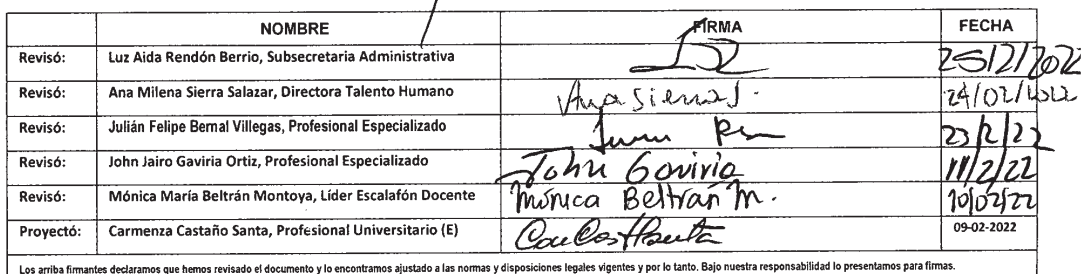 NOMBRE FIRMA FECHA
Revisó: Luz Aida Rendón Berrio, Subsecretaria Administrativa 25/2/2022
Revisó: Ana Milena Sierra Salazar, Directora Talento Humano Ana Sierra S. 24/02/2022
Revisó: Julián Felipe Bernal Villegas, Profesional Especializado 23/2/22
Revisó: John Jairo Gaviria Ortiz, Profesional Especializado John Gaviria 11/2/22
Revisó: Mónica María Beltrán Montoya, Líder Escalafón Docente Mónica Beltrán M. 10/02/22
Proyectó: Carmenza Castaño Santa, Profesional Universitario (E) 09-02-2022
Los arriba firmantes declaramos que hemos revisado el documento y lo encontramos ajustado a las normas y disposiciones legales vigentes y por lo tanto. Bajo nuestra responsabilidad lo presentamos para firmas.